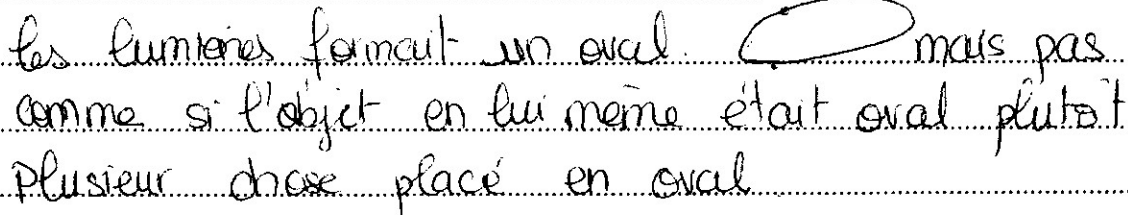 les lumières formait un oval. mais pas
comme si l'objet en lui même était oval plutôt
plusieur chose placé en oval